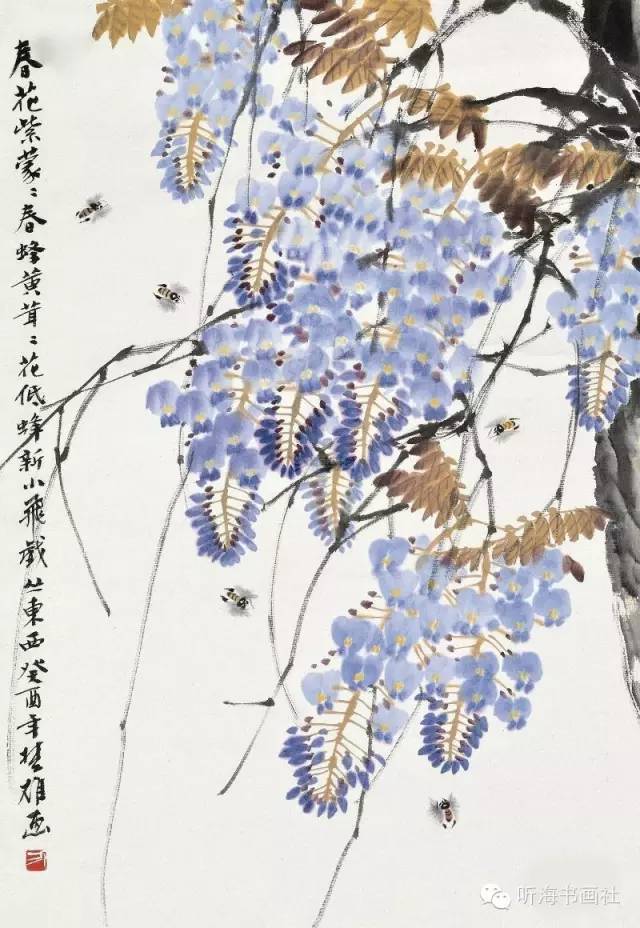 春花紫蒙〻春蜂黄茸〻花低蜂新小飛戲丛東西癸酉年楚雄画
听海书画社